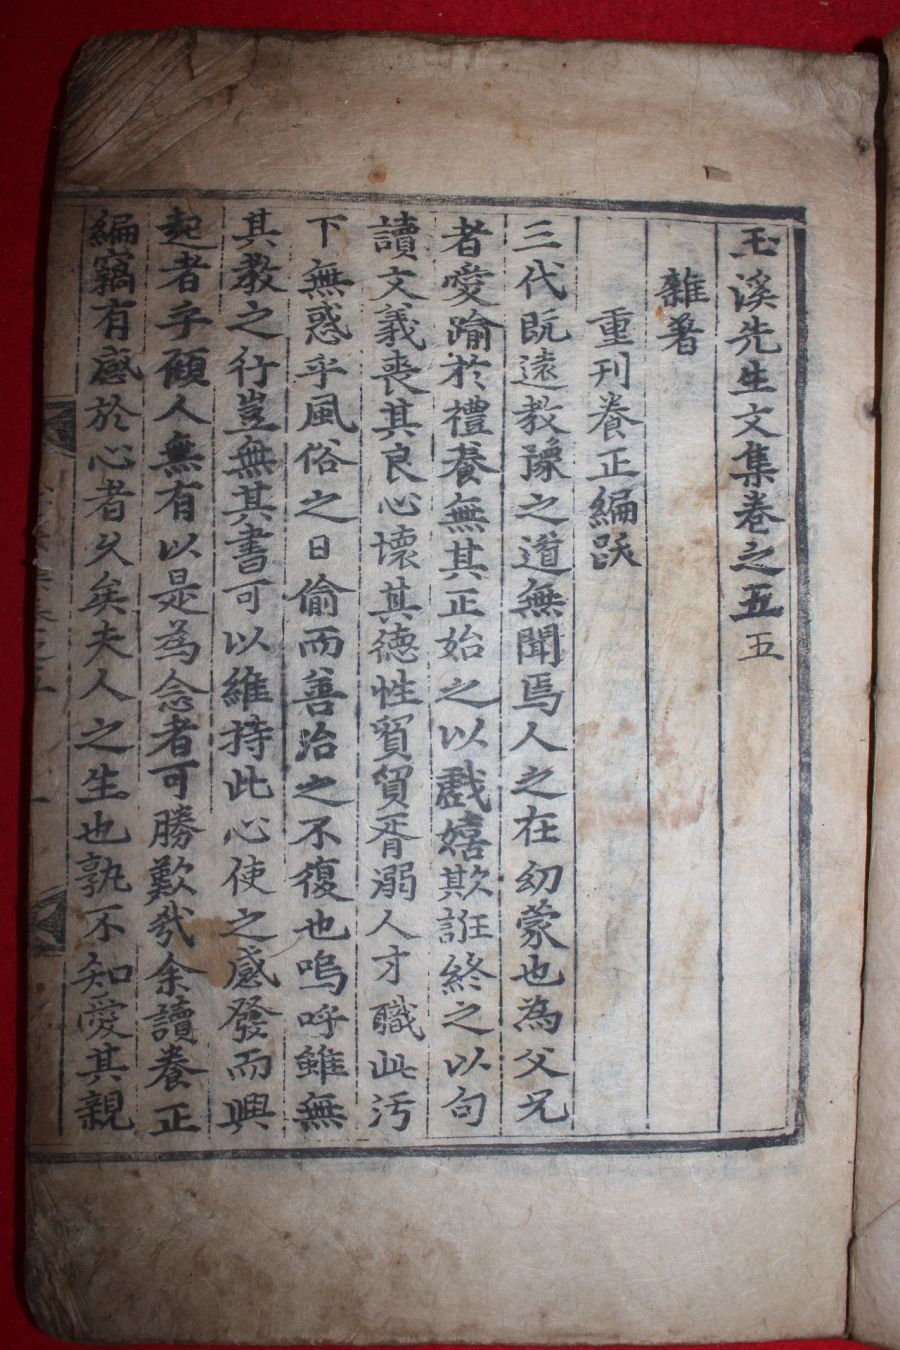 玉溪先生文集卷之五 五
雜著
重刊養正編跋
三代既遠教豫之道無聞焉人之在幼蒙也為父兄
者愛踰於禮養無其正始之以戲嬉欺誑終之以句
讀文義喪其良心壞其德性貿貿胥溺人才職此汚
下無惑乎風俗之日偷而善治之不復也嗚呼雖無
其教之行豈無其書可以維持此心使之感發而興
起者乎顧人無有以是為念者可勝歎哉余讀養正
編竊有感於心者久矣夫人之生也孰不知愛其親